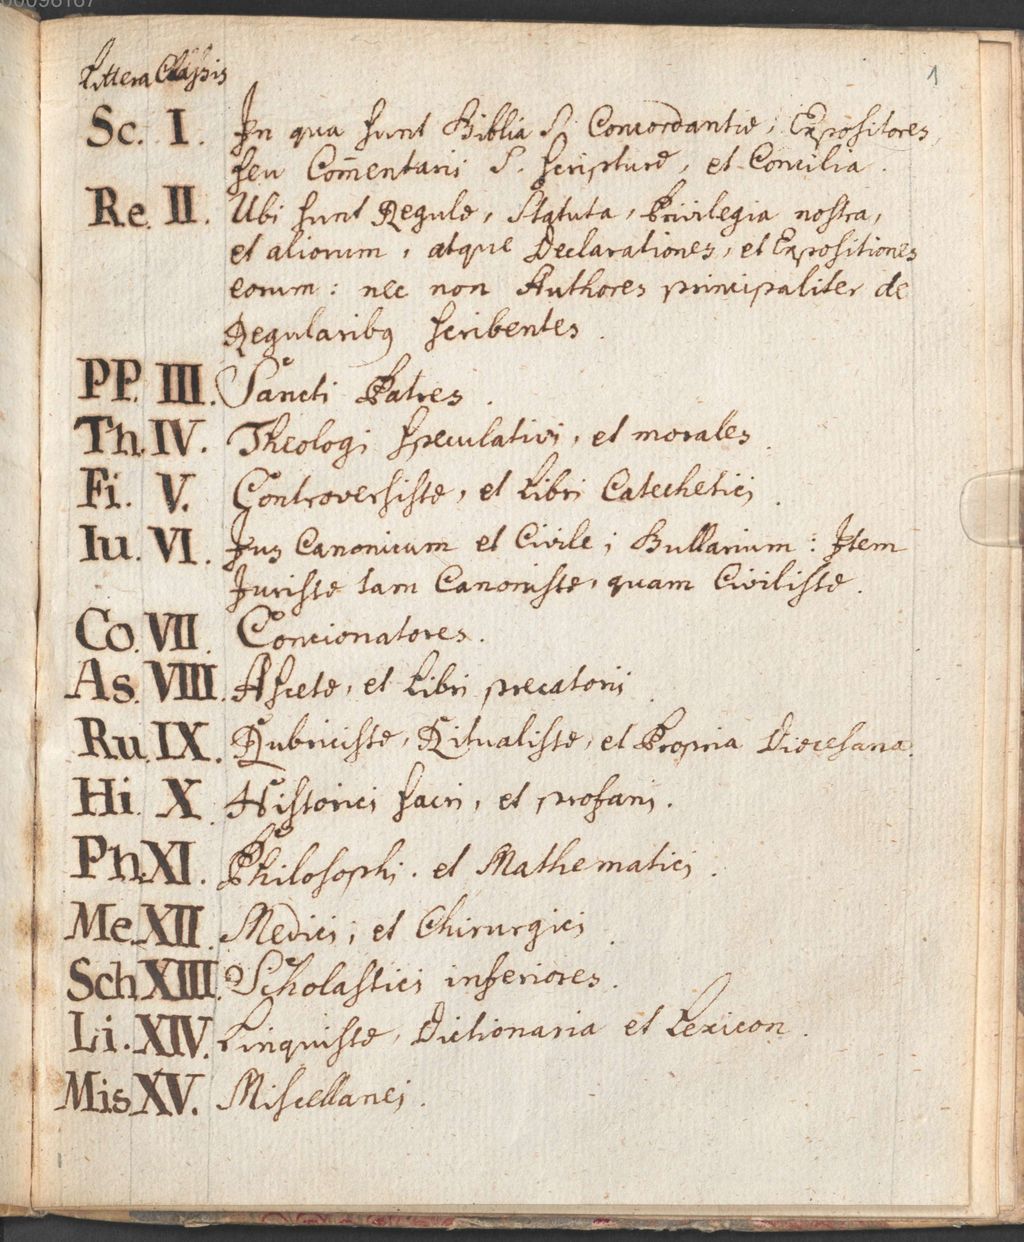 00098167
1
Littera Classis
Sc. I. In qua sunt Biblia S. Concordantiæ, Expositores,
seu Com̄entarii S. Scripturæ, et Concilia.
Re. II. Ubi sunt Regulæ, Statuta, Privilegia nostra,
et aliorum, atque Declarationes, et Expositiones
eorum: nec non Authores principaliter de
Regularibꝰ scribentes.
PP. III. Sancti Patres.
Th. IV. Theologi speculativi, et morales.
Fi. V. Controversistæ, et Libri Catechetici.
Iu. VI. Jus Canonicum et Civile; Bullarium: Item
Juristæ tam Canonistæ, quam Civilistæ.
Co. VII. Concionatores.
As. VIII. Ascetæ, et Libri precatorii.
Ru. IX. Rubricistæ, Ritualistæ, et Propria Diœcesana.
Hi. X. Historici sacri, et profani.
Ph. XI. Philosophi. et Mathematici.
Me. XII. Medici, et Chirurgici.
Sch. XIII. Scholastici inferiores.
Li. XIV. Linquistæ, Dictionaria et Lexicon.
Mis. XV. Miscellanei.